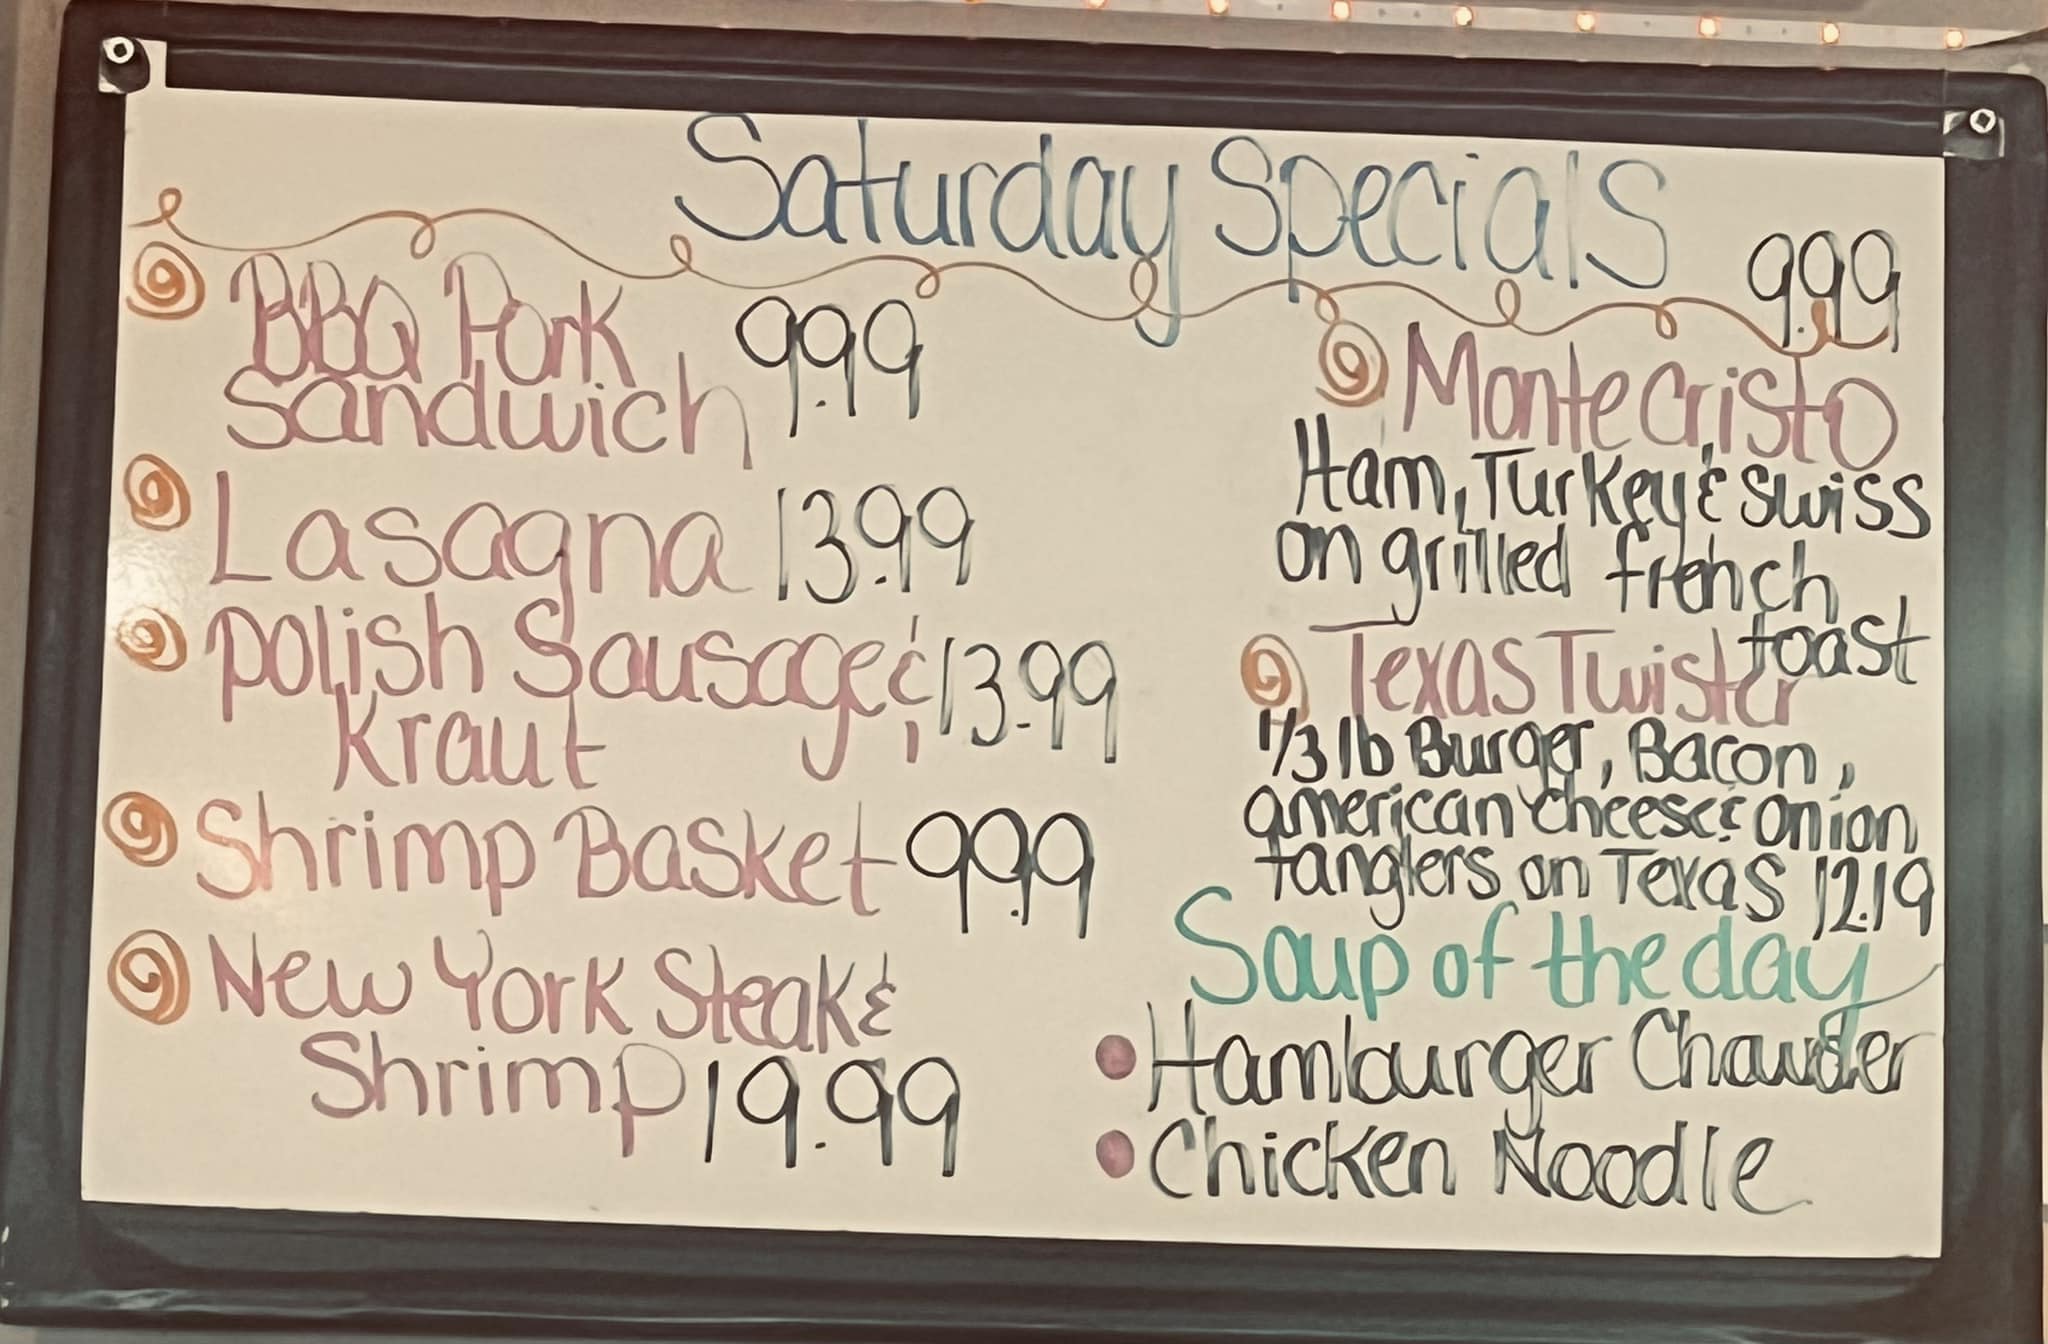 Saturday Specials
BBQ Pork
Sandwich 9.99
Lasagna 13.99
Polish Sausage & 13.99
Kraut
Shrimp Basket 9.99
New York Steak &
Shrimp 19.99
9.99
Monte Cristo
Ham, Turkey & Swiss
on grilled french
toast
Texas Twister
1/3 lb Burger, Bacon,
american cheese & onion
tanglers on Texas 12.19
Soup of the day
Hamburger Chowder
Chicken Noodle